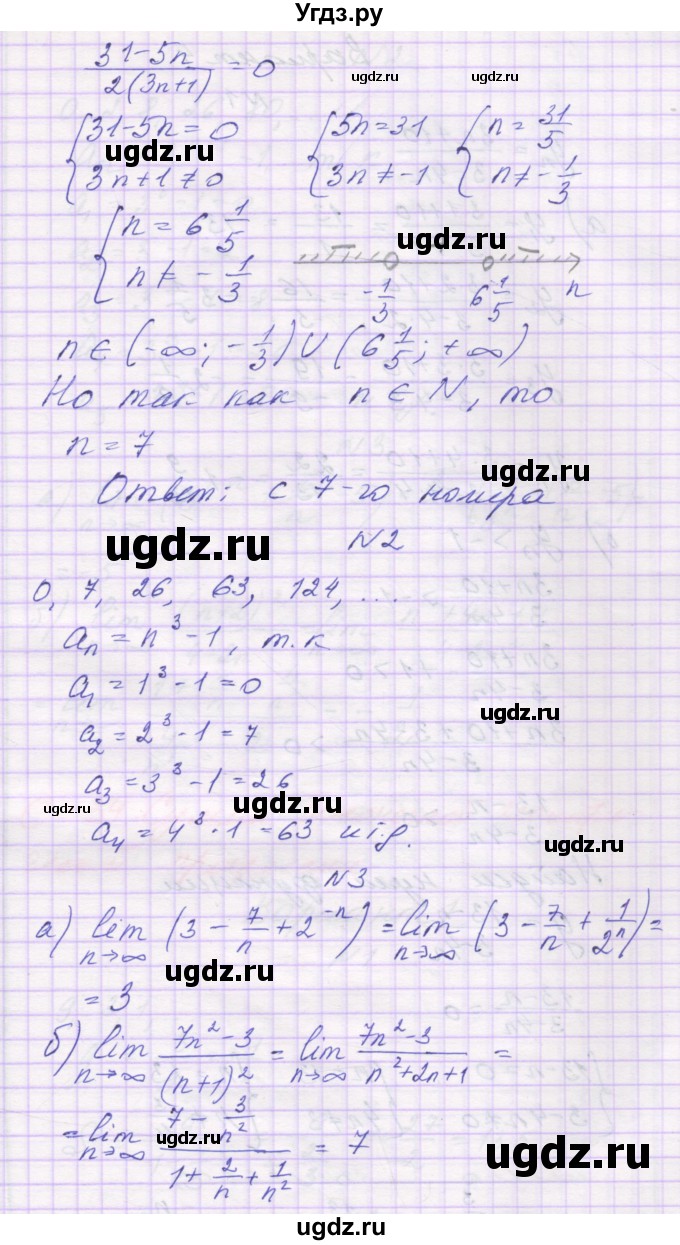 Угдз.ру
(31-5n)/(2(3n+1)) = 0
ugdz.ru ugdz.ru
{31-5n=0 {5n=31 {n=31/5
ugdz.ru
{3n+1≠0 {3n≠-1 {n≠-1/3
{n=6 1/5
ugdz.ru
{n≠-1/3 -1/3 6 1/5 n
n∈(-∞; -1/3)∪(6 1/5; +∞)
Но так как n∈N, то
n=7
ugdz.ru
Ответ: с 7-го номера
ugdz.ru
N2
0, 7, 26, 63, 124, ...
aₙ=n³-1, т.к
ugdz.ru
a₁=1³-1=0
ugdz.ru
a₂=2³-1=7
a₃=3³-1=26
ugdz.ru
ugdz.ru
a₄=4³-1=63 и т.д.
ugdz.ru
N3
а) lim n→∞ (3 - 7/n + 2⁻ⁿ) = lim n→∞ (3 - 7/n + 1/2ⁿ) =
ugdz.ru
= 3
б) lim n→∞ (7n²-3)/(n+1)² = lim n→∞ (7n²-3)/(n²+2n+1) =
= lim n→∞ (7 - 3/n²)/(1 + 2/n + 1/n²) = 7
ugdz.ru
ugdz.ru
ugdz.ru